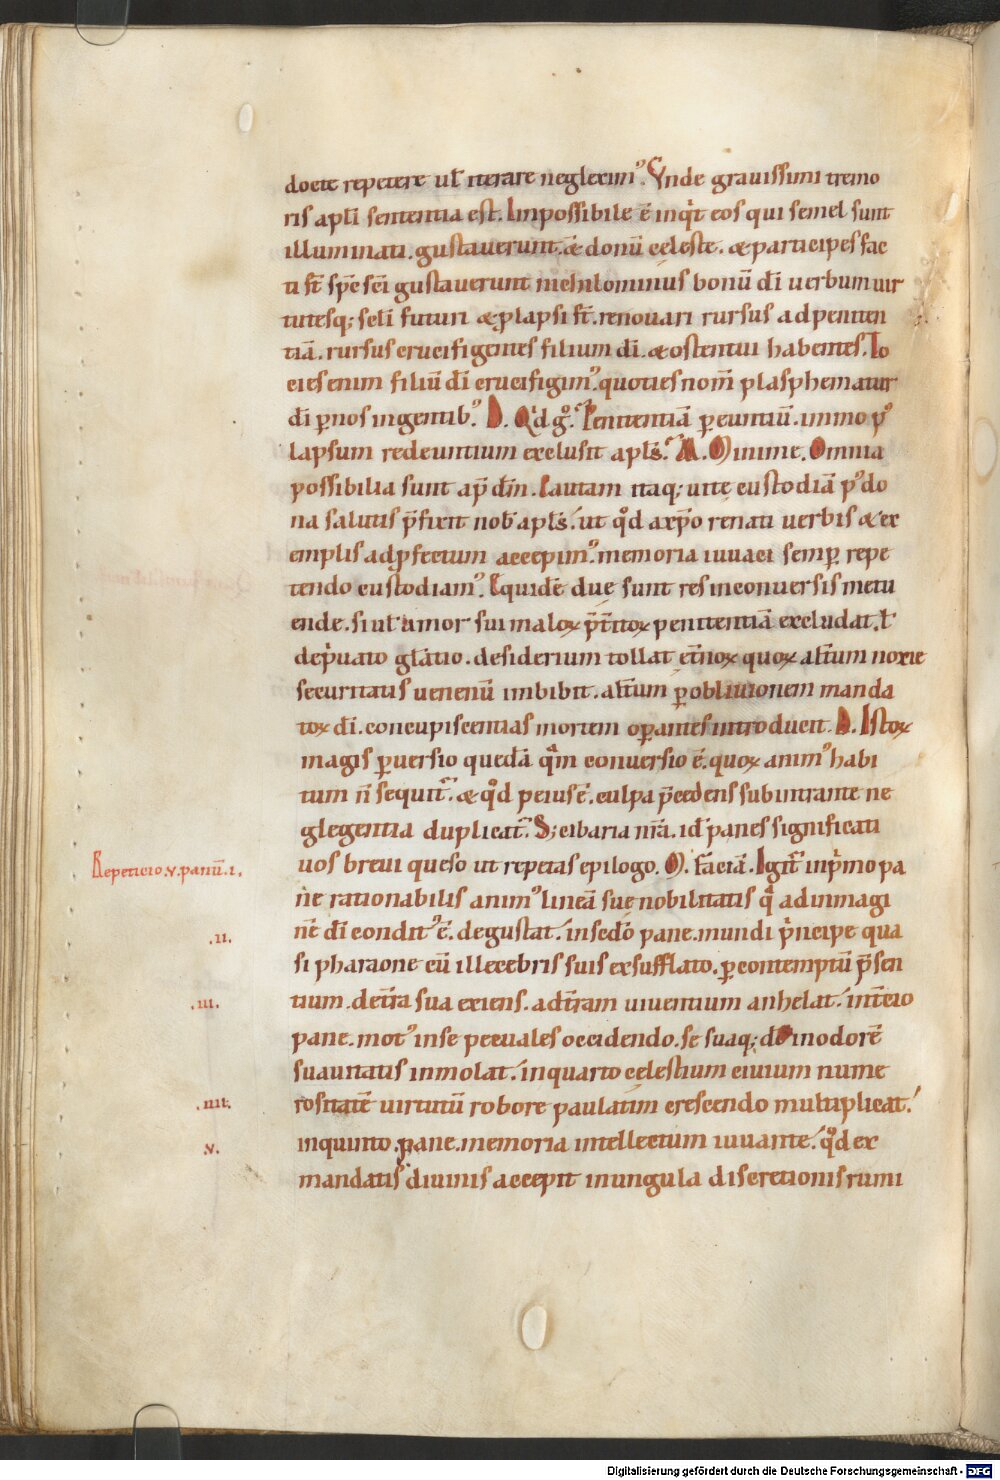 docte repetere ul iterare neglexim᾿. Vnde grauissimi tremo
ris apli sententia est. Inpossibile ē inqt eos qui semel sunt
illuminati. gustauerunt. & donū celeste. & participes fac
ti st spc sci gustauerunt nichilominus bonū di uerbum uir
tutesq; scli futuri & plapsi st. renouari rursus ad peniten
tiā. rursus crucifigentes filium di. & ostentui habentes. To
cies enim filiū di crucifigim᾿. quoties nom plasphematur
di p nos in gentib᾿. D. Qd g. Penitentiā p euntiū. immo p᾿
lapsum redeuntium exclusit apls. M. Minime. Omnia
possibilia sunt ap dm. Cautam itaq; uite custodiā p᾿ do
na salutis pfixit nob apls. ut qd a xpo renati uerbis & ex
emplis ad pfectum accepim᾿. memoria iuuaci semp repe
tendo custodiam᾿. Equidē due sunt res in conuersis metu
ende. si ul amor sui maloꝝ pt̄itoꝝ penitentiā excludat. ł
depuato glatio. desiderium tollat et̄noꝝ quoꝝ alt̄um noxie
securitatis uenenū imbibit. alt̄um p obliuionem manda
toꝝ di. concupiscentias mortem opantes introducit. D. Istoꝝ
magis puersio quedā qm conuersio ē. quoꝝ anim᾿ habi
tum n̄ sequit. & qd peius ē. culpa pcedens subintrante ne
glegentia duplicat. S; cibaria nra. id panes significati
uos breui queso ut repetas epilogo. M. Faciā. Igit inpmo pa
Repeticio .v. panū. .i.
ne rationabilis anim᾿ lineā sue nobilitatis q ad inmagi
nē di condit᾿ ē. degustat. in scdo pane. mundi pncipe qua
.ii.
si pharaone cū illecebris suis exsufflato. p contemptū psen
tium. de tra sua exiens. ad tram uiuentium anhelat. in tcio
.iii.
pane. mot᾿ in se pecuales occidendo. se suaq; do in odorē
suauitatis inmolat. in quarto celestium ciuium nume
rositatē uirtutū robore paulatim crescendo multiplicat.
.iiii.
in quinto. pane. memoria intellectum iuuante. qd ex
.v.
mandatis diuinis accepit in ungula discretionis rumi
Digitalisierung gefördert durch die Deutsche Forschungsgemeinschaft - DFG